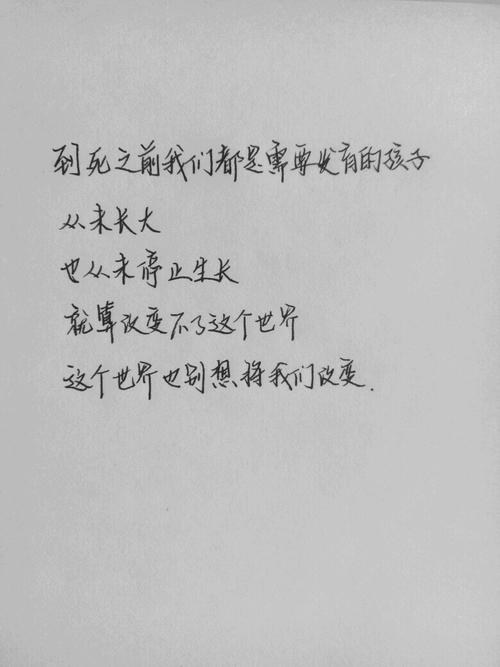 到死之前我们都是需要发育的孩子
从未长大
也从未停止生长
就算改变不了这个世界
这个世界也别想将我们改变.